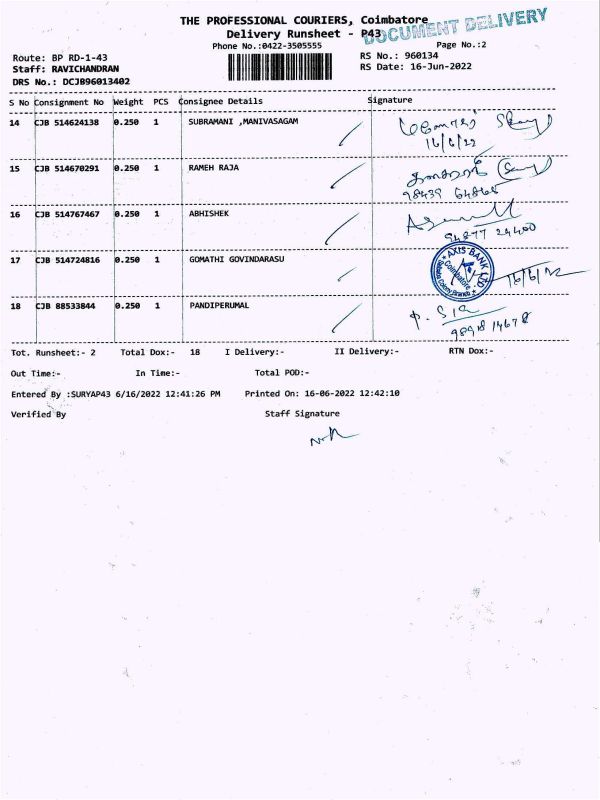 THE PROFESSIONAL COURIERS, Coimbatore
DOCUMENT DELIVERY
Delivery Runsheet - P43
Phone No.:0422-3505555
Page No.:2
Route: BP RD-1-43
RS No.: 960134
Staff: RAVICHANDRAN
RS Date: 16-Jun-2022
DRS No.: DCJB96013402
S No Consignment No Weight PCS Consignee Details Signature
14 CJB 514624138 0.250 1 SUBRAMANI ,MANIVASAGAM
16/6/22
15 CJB 514670291 0.250 1 RAMEH RAJA
98439 64868
16 CJB 514767467 0.250 1 ABHISHEK
94877 24400
17 CJB 514724816 0.250 1 GOMATHI GOVINDARASU
AXIS BANK LTD.
Coimbatore
16/6/22
18 CJB 88533844 0.250 1 PANDIPERUMAL
98918 14678
Tot. Runsheet:- 2 Total Dox:- 18 I Delivery:- II Delivery:- RTN Dox:-
Out Time:- In Time:- Total POD:-
Entered By :SURYAP43 6/16/2022 12:41:26 PM Printed On: 16-06-2022 12:42:10
Verified By Staff Signature